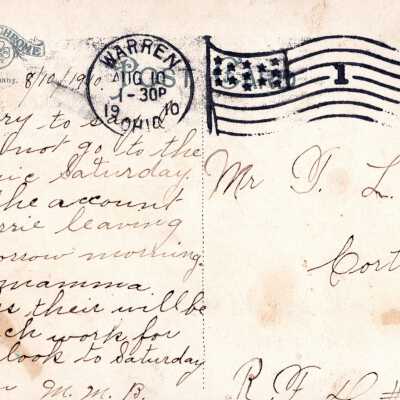 CHROME
WARREN
AUG 10
1-30P
19 10
OHIO
POST CARD
1
8/10/1910
ry to say
not go to the
nic Saturday
the account
rrie leaving
orrow morning.
mamma
s their will be
ch work for
look to Saturday
M. M. B.
Mr T. L.
Cort
R. F. D. #